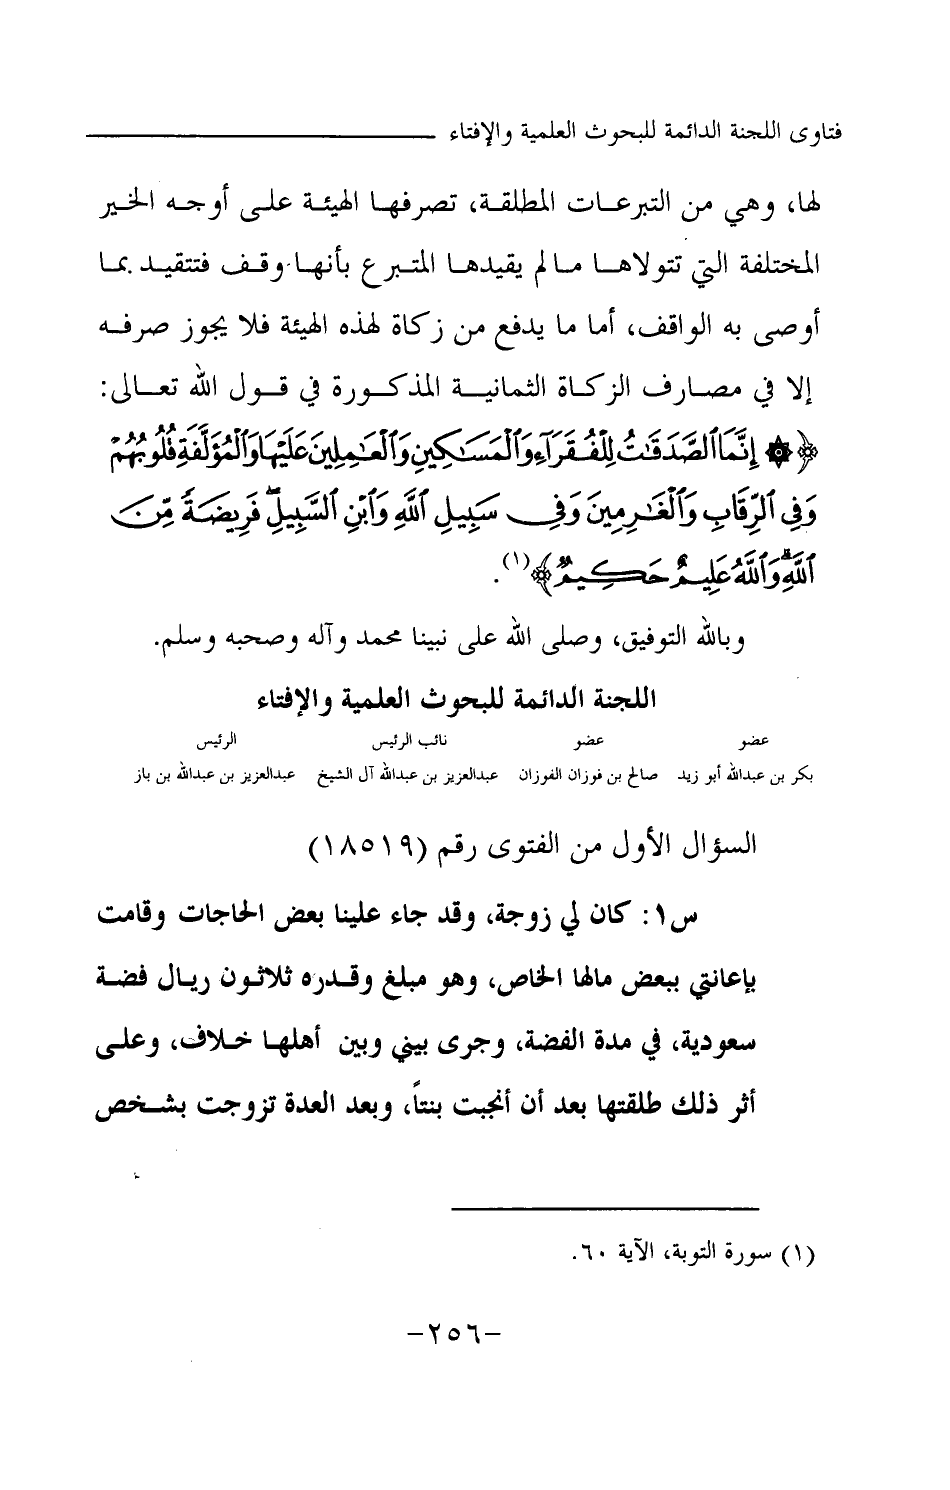 فتاوى اللجنة الدائمة للبحوث العلمية والإفتاء
لها، وهي من التبرعات المطلقة، تصرفها الهيئة على أوجه الخير
المختلفة التي تتولاها ما لم يقيدها المتبرع بأنها وقف فتتقيد بما
أوصى به الواقف، أما ما يدفع من زكاة لهذه الهيئة فلا يجوز صرفه
إلا في مصارف الزكاة الثمانية المذكورة في قول الله تعالى:
﴿۞ إِنَّمَا ٱلصَّدَقَٰتُ لِلْفُقَرَآءِ وَٱلْمَسَٰكِينِ وَٱلْعَٰمِلِينَ عَلَيْهَا وَٱلْمُؤَلَّفَةِ قُلُوبُهُمْ
وَفِي ٱلرِّقَابِ وَٱلْغَٰرِمِينَ وَفِي سَبِيلِ ٱللَّهِ وَٱبْنِ ٱلسَّبِيلِۖ فَرِيضَةً مِّنَ
ٱللَّهِۗ وَٱللَّهُ عَلِيمٌ حَكِيمٌ﴾(١).
وبالله التوفيق، وصلى الله على نبينا محمد وآله وصحبه وسلم.
اللجنة الدائمة للبحوث العلمية والإفتاء
عضو عضو نائب الرئيس الرئيس
بكر بن عبدالله أبو زيد صالح بن فوزان الفوزان عبدالعزيز بن عبدالله آل الشيخ عبدالعزيز بن عبدالله بن باز
السؤال الأول من الفتوى رقم (١٨٥١٩)
س١: كان لي زوجة، وقد جاء علينا بعض الحاجات وقامت
بإعانتي ببعض مالها الخاص، وهو مبلغ وقدره ثلاثون ريال فضة
سعودية، في مدة الفضة، وجرى بيني وبين أهلها خلاف، وعلى
أثر ذلك طلقتها بعد أن أنجبت بنتاً، وبعد العدة تزوجت بشخص
(١) سورة التوبة، الآية ٦٠.
-٢٥٦-